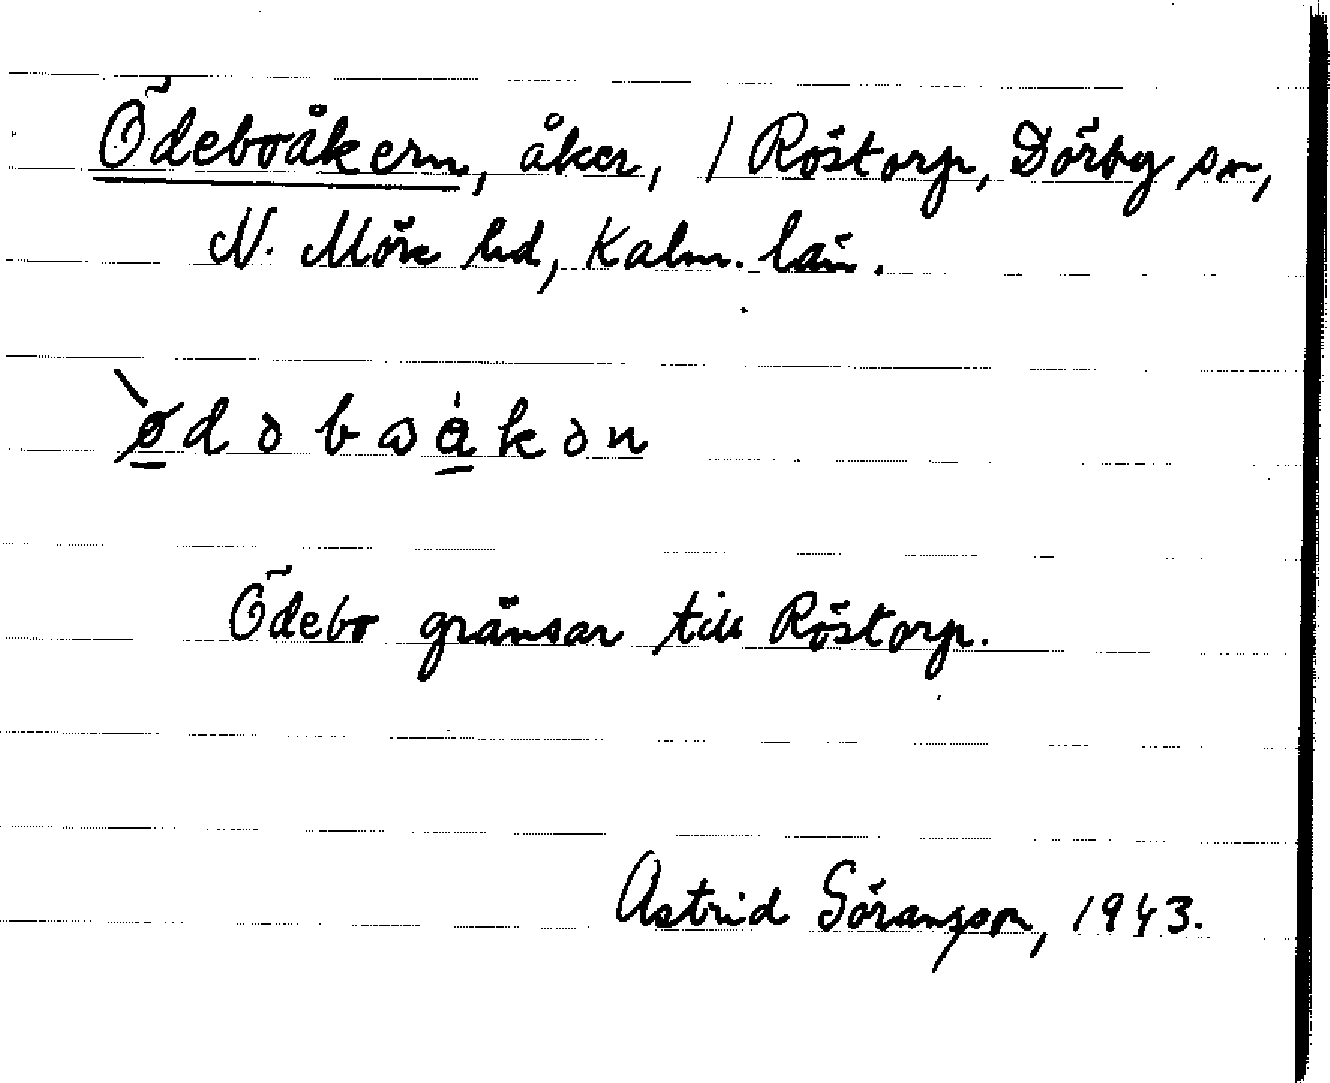 Ödeboåkern, åker, 1 Röstorp, Dörby sn,
N. Möre hd, Kalm. län.
Ödebo gränsar till Röstorp.
Astrid Göranson, 1943.